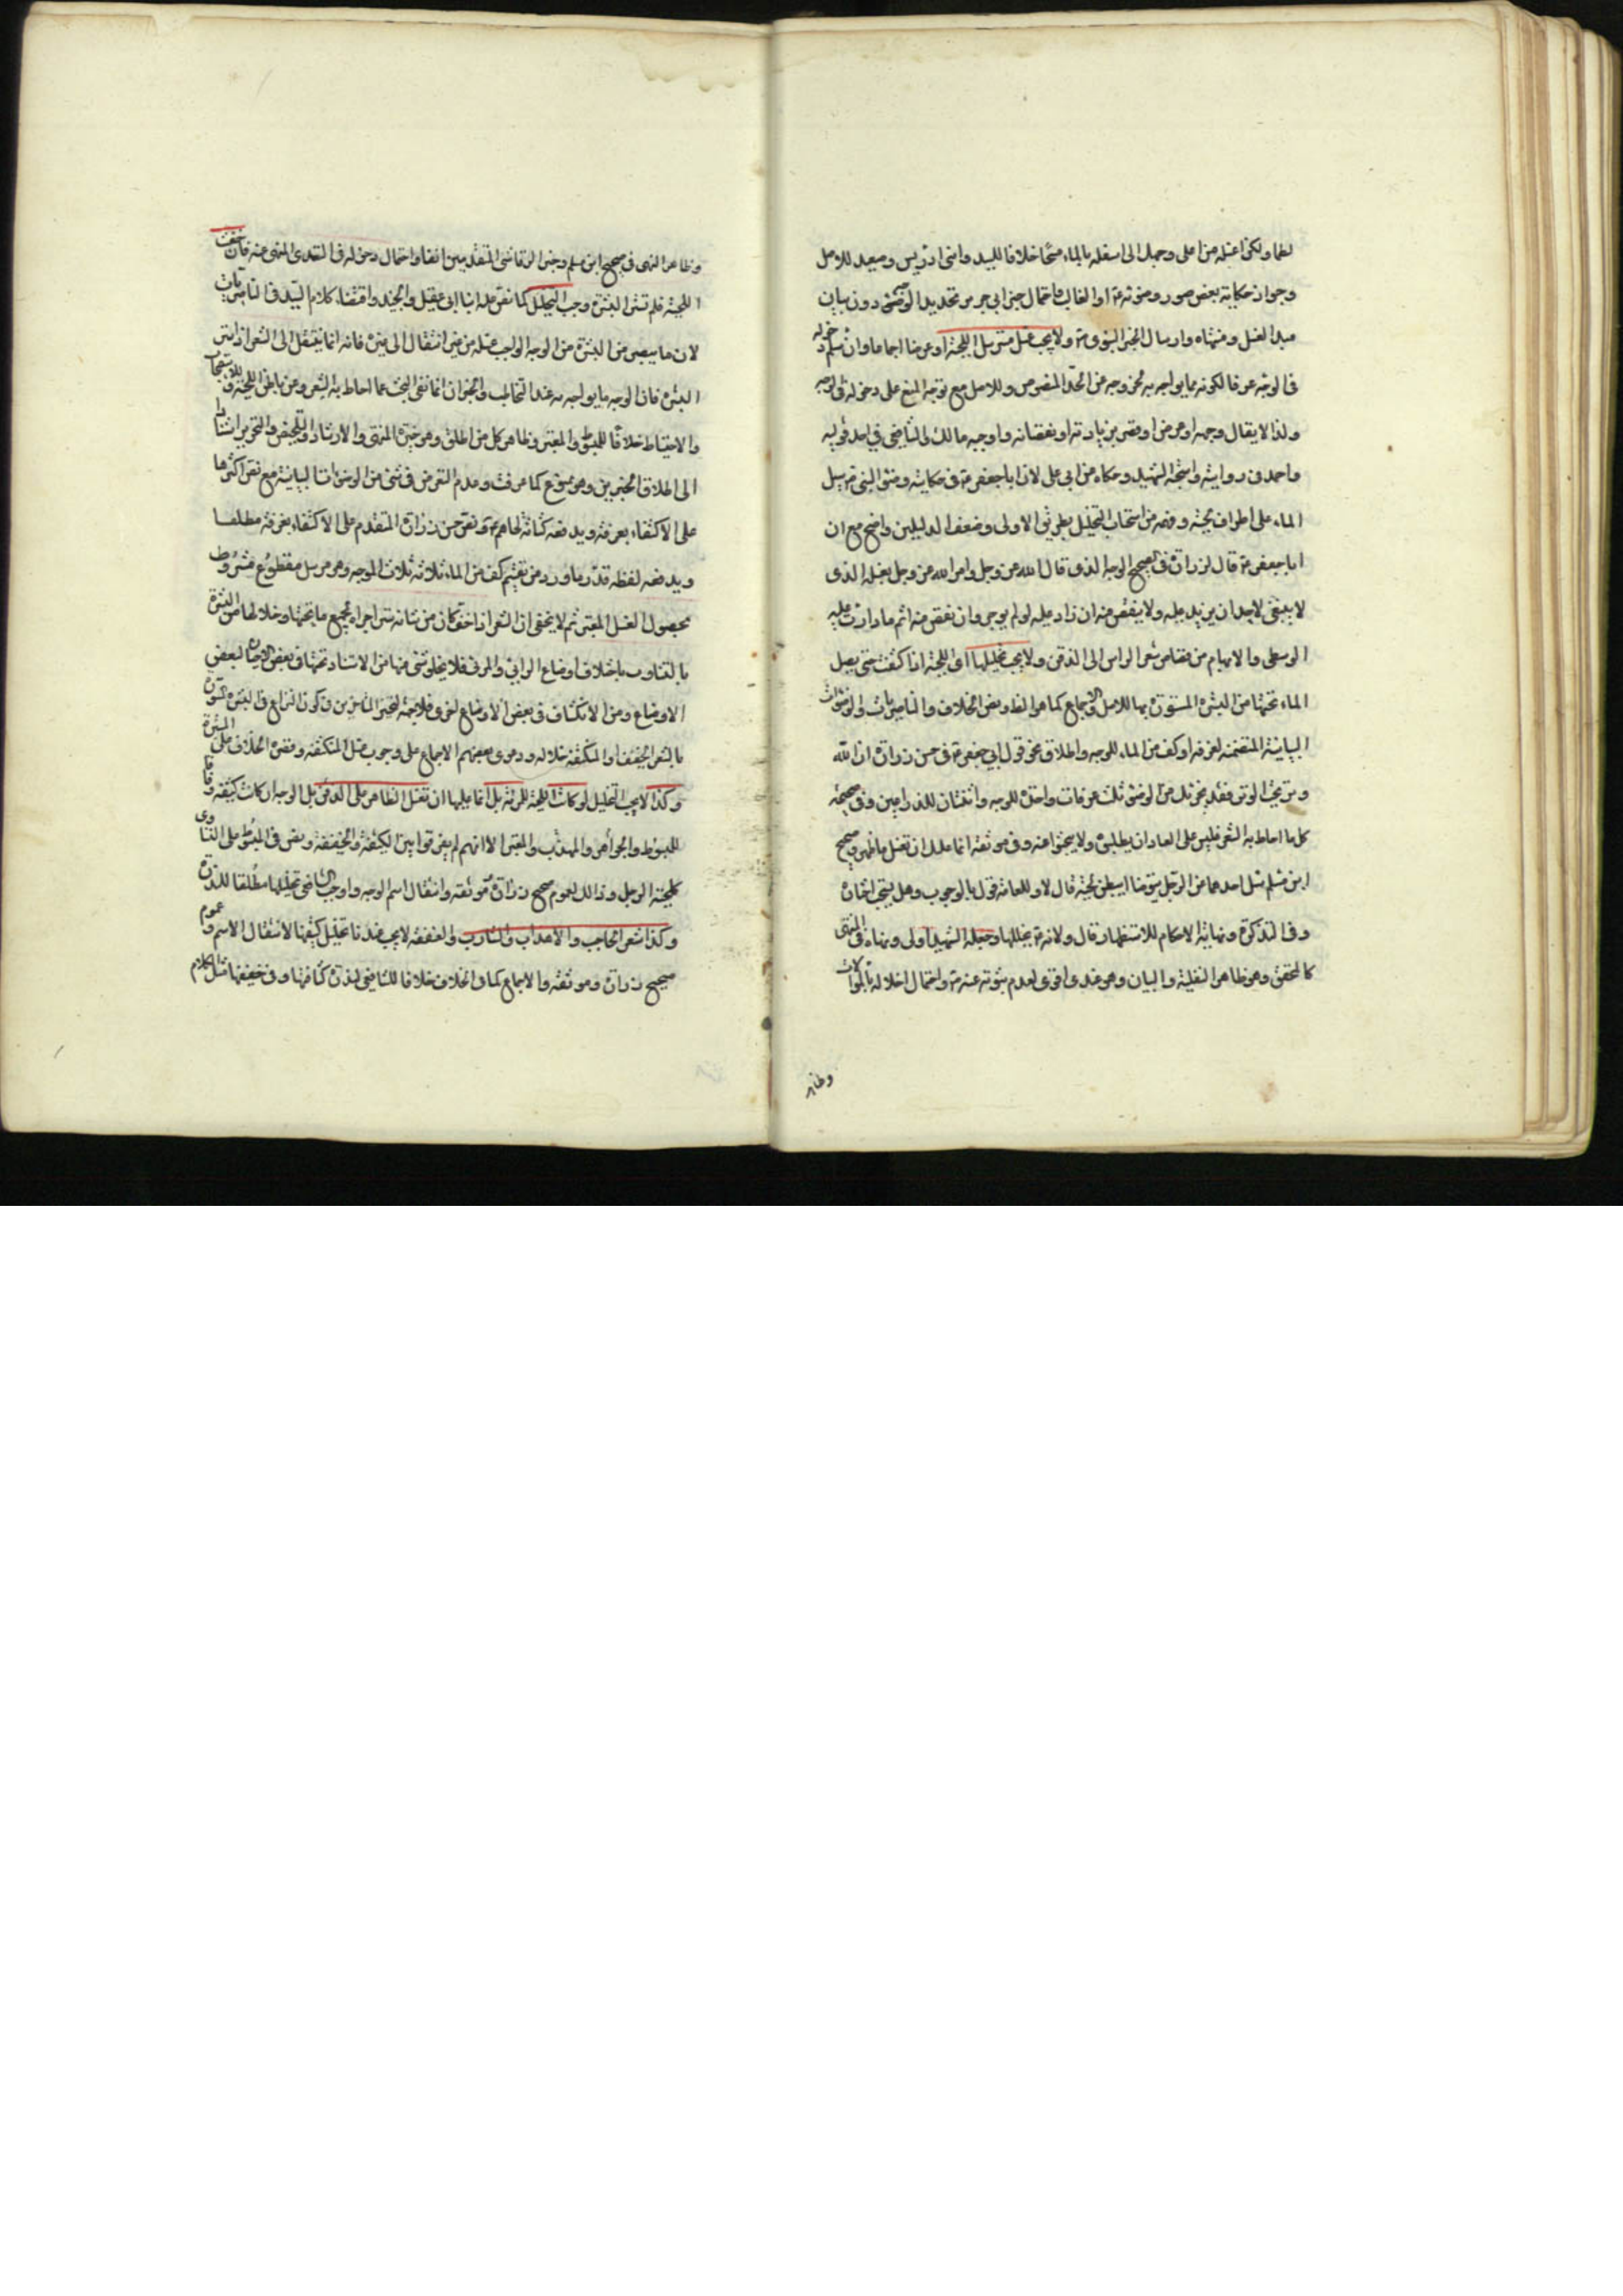 لطما ولكن اغسله من اعلى وجهك الى اسفله بالماء مسحا خلافا للسيد وابني ادريس وسعيد للاصل
وجواز حكاية بعض صور وضوئه ع او الغالب واحتمال خبر ابي جرير تحديد الوضوء دون بيان
مبدا الغسل ومنتهاه وارسال الخبر النبوي ص ولا يجب غسل مسترسل اللحية او عرضا اجماعا وان سلم دخوله
في الوجه عرفا لكونه مما يواجه به لخروجه من الحد المنصوص وللاصل مع توجه المنع على دخوله في الوجه
ولذا لا يقال وجهه او عرض او قصر بزيادته او نقصانه واوجبه مالك والشافعي في احد قوليه
واحمد في رواية واستحبه الشهيد وحكاه عن ابي علي لان ابا جعفر ع في حكايته وضوء النبي ص سيل
الماء على اطراف لحيته وفهمه من استحباب التخليل بطريق الاولى وضعف الدليلين واضح مع ان
ابا جعفر ع قال لزرارة في الصحيح الوجه الذي قال الله عز وجل وامر الله عز وجل بغسله الذي
لا ينبغي لاحد ان يزيد عليه ولا ينقص منه ان زاد عليه لم يوجر وان نقص منه اثم ما دارت عليه
الوسطى والابهام من قصاص شعر الراس الى الذقن ولا يجب تخليلها اي اللحية اذا كثفت حتى يصل
الماء تحتها من البشرة المستورة بها للاصل والاجماع كما هو الظ وبعض الخلاف والناصريات والوضوئات
البيانية المتضمنة لغرفة او كف من الماء للوجه واطلاق نحو قول ابي جعفر ع في حسن زرارة ان الله
وتر يحب الوتر فقد يجزئك من الوضوء ثلث غرفات واحدة للوجه واثنتان للذراعين وفي صحيحه
كل ما احاط به الشعر فليس على العباد ان يطلبوه ولا يبحثوا عنه وفي موثقه انما عليك ان تغسل ما ظهر وصحيح
ابن مسلم سئل احدهما عن الرجل يتوضا ايبطن لحيته قال لا وللعامة قول بالوجوب وهل يستحب اختاره
وفي التذكرة ونهاية الاحكام للاستظهار قال ولانه ع يخللها وجعله الشهيد اولى ونفاه في المنتهى
كالمحقق وهو ظاهر النفلية والبيان وهو عندي اقوى لعدم ثبوته عنه ع واحتمال اخلاله بالموالات
وظاهر
وظاهر النهي في صحيح ابن مسلم وخبر الرقاشي المتقدمين انفا واحتمال دخوله في التعدي المنهي عنه فان خفت
اللحية فلم تستر البشرة وجب التخليل كما نص عليه ابنا ابي عقيل والجنيد واقتضاه كلام السيد في الناصريات
لان ما يبصر من البشرة من الوجه الواجب غسله من غير انتقال الى غيره فانه انما ينتقل الى الشعر اذا ستر
البشرة فان الوجه ما يواجه به عند التخاطب والخبران انما نفى البحث عما احاط به الشعر وعن باطن اللحية وللاستصحاب
والاحتياط خلافا للمبسوط والمعتبر وظاهر كل من اطلق وهو خيرة المنتهى والارشاد والتلخيص والتحرير استنادا
الى اطلاق الخبرين وهو ممنوع كما عرفت وعدم التعرض في شيء من الوضوئات البيانية مع نص اكثرها
على الاكتفاء بغرفة ويدفعه كثاثة لحاهم ع ونص حسن زرارة المتقدم على الاكتفاء بغرفة مطلقا
ويدفعه لفظة قد وما ورد من تقسيم كف من الماء ثلاثة ثلاث للوجه وهو مرسل مقطوع مشروط
بحصول الغسل المعتبر ثم لا يخفى ان الشعر اذا خف كان من شانه ستر اجزاء لجميع ما تحتها وخلالها من البشرة
بالتناوب باختلاف اوضاع الرائي والمرئي فلا يخلو شيء منها من الاستتار تحتها في بعض الاحيان لبعض
الاوضاع ومن الانكشاف في بعض الاوضاع اخرى فلا جهة لتحيز المتاخرين في كون النزاع في البشرة المستورة
بالشعر الخفيف او المنكشفة خلاله ودعوى بعضهم الاجماع على وجوب غسل المنكشفة وقصر الخلاف على المستترة
وكذا لا يجب التخليل لو كانت اللحية للمرئة بل انما عليها ان تغسل الظاهر على الذقن بل الوجه ان كانت كثيفة وفاقا
للمبسوط والجواهر والمهذب والمعتبر الا انهم لم يفرقوا بين الكثيفة والخفيفة ونص في المبسوط على التساوي
كلحية الرجل وذلك لعموم صحيح زرارة وموثقه وانتقال اسم الوجه واوجب الشافعي تخليلها مطلقا للندرة
وكذا شعر الحاجب والاهداب والشارب والعنفقة لا يجب عندنا تخليل كثيفها لانتقال الاسم وعموم
صحيح زرارة وموثقه والاجماع كما في الخلاف خلافا للشافعي لندرة كثافتها وفي خفيفها مثل الكلام